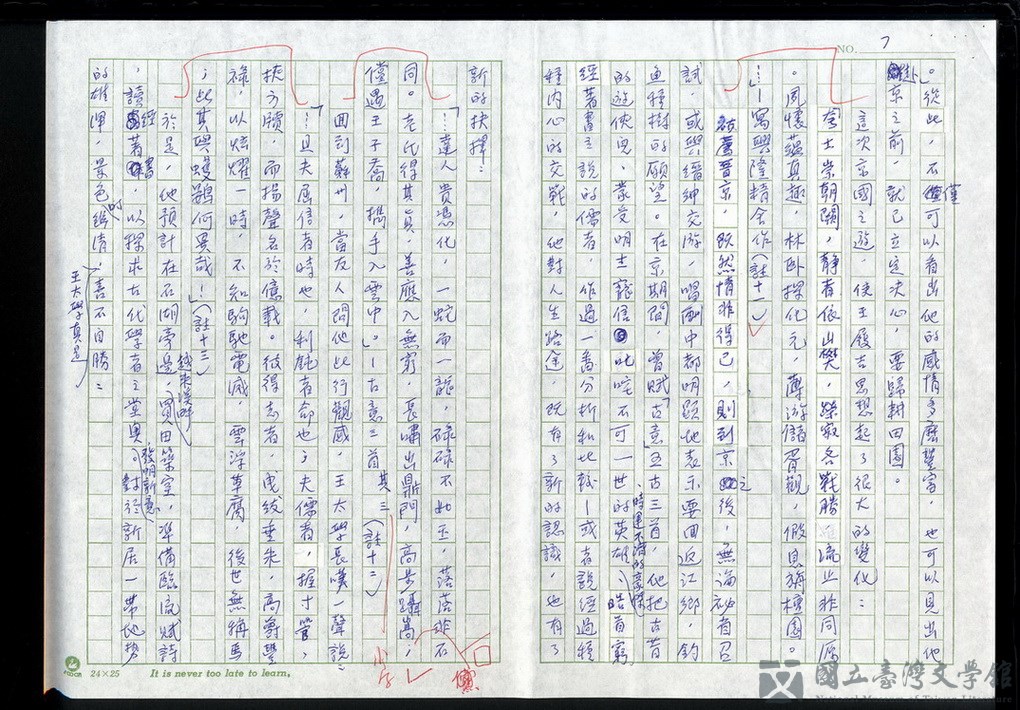 NO. 7
。從此，不僅可以看出他的感情多麼豐富，也可以見出他
卦京之前，就已立定決心，要歸耕田園。
這次京國之遊，使王履吉思想起了很大的變化：
「夸士崇朝闕，靜者依山樊，躁寂各戰勝，流止非同源
。夙懷蘊真趣，林臥探化元，薄游儲胥觀，假息旃檀園。
…」—寓興隆精舍作（註十一）
被薦晉京，既然情非得已，則到京之後，無論被召
試，或與縉紳交游，唱酬中都明顯地表示要回返江鄉，釣
魚種樹的願望。在京期間，曾賦「古意」五古三首，他把古昔
的遊俠兒，蒙受明主寵信，叱咤不可一世的英雄，時運不濟的豪傑，皓首窮
經著書立說的儒者，作過一番分析和比較—或者說經過種
種內心的交戰，他對人生路途，既有了新的認識，也有了
新的抉擇：
「…達人貴憑化，一蛇而一龍，碌碌不如玉，落落非石
同。老氏得其真，善應入無窮，長嘯出鼎門，高步躡嵩，
儻遇王子喬，攜手入雲中。」—古意三首其三（註十二）
回到蘇州，當友人問他此行觀感，王太學長嘆一聲說：
「…且夫屈信者時也，利鈍者命也；夫儒者，握寸管，
挾方牘，而揚聲名於億載。彼得志者，曳紱垂朱，高爵豐
祿，以炫耀一時，不知駒馳電滅，雲浮草腐，後世無稱焉
；此其與蠖鷃何異哉！」（註十三）
於是，他預計在石湖旁邊，越來溪畔買田築室，準備臨流賦詩
，讀經著書，以探求古代學者之堂奧，發明新意；對於新居一帶地勢
的雄渾，景色的幽清，喜不自勝：
王太學真是
小字
24×25 It is never too late to learn.
國立臺灣文學館
National Museum of Taiwan Literature